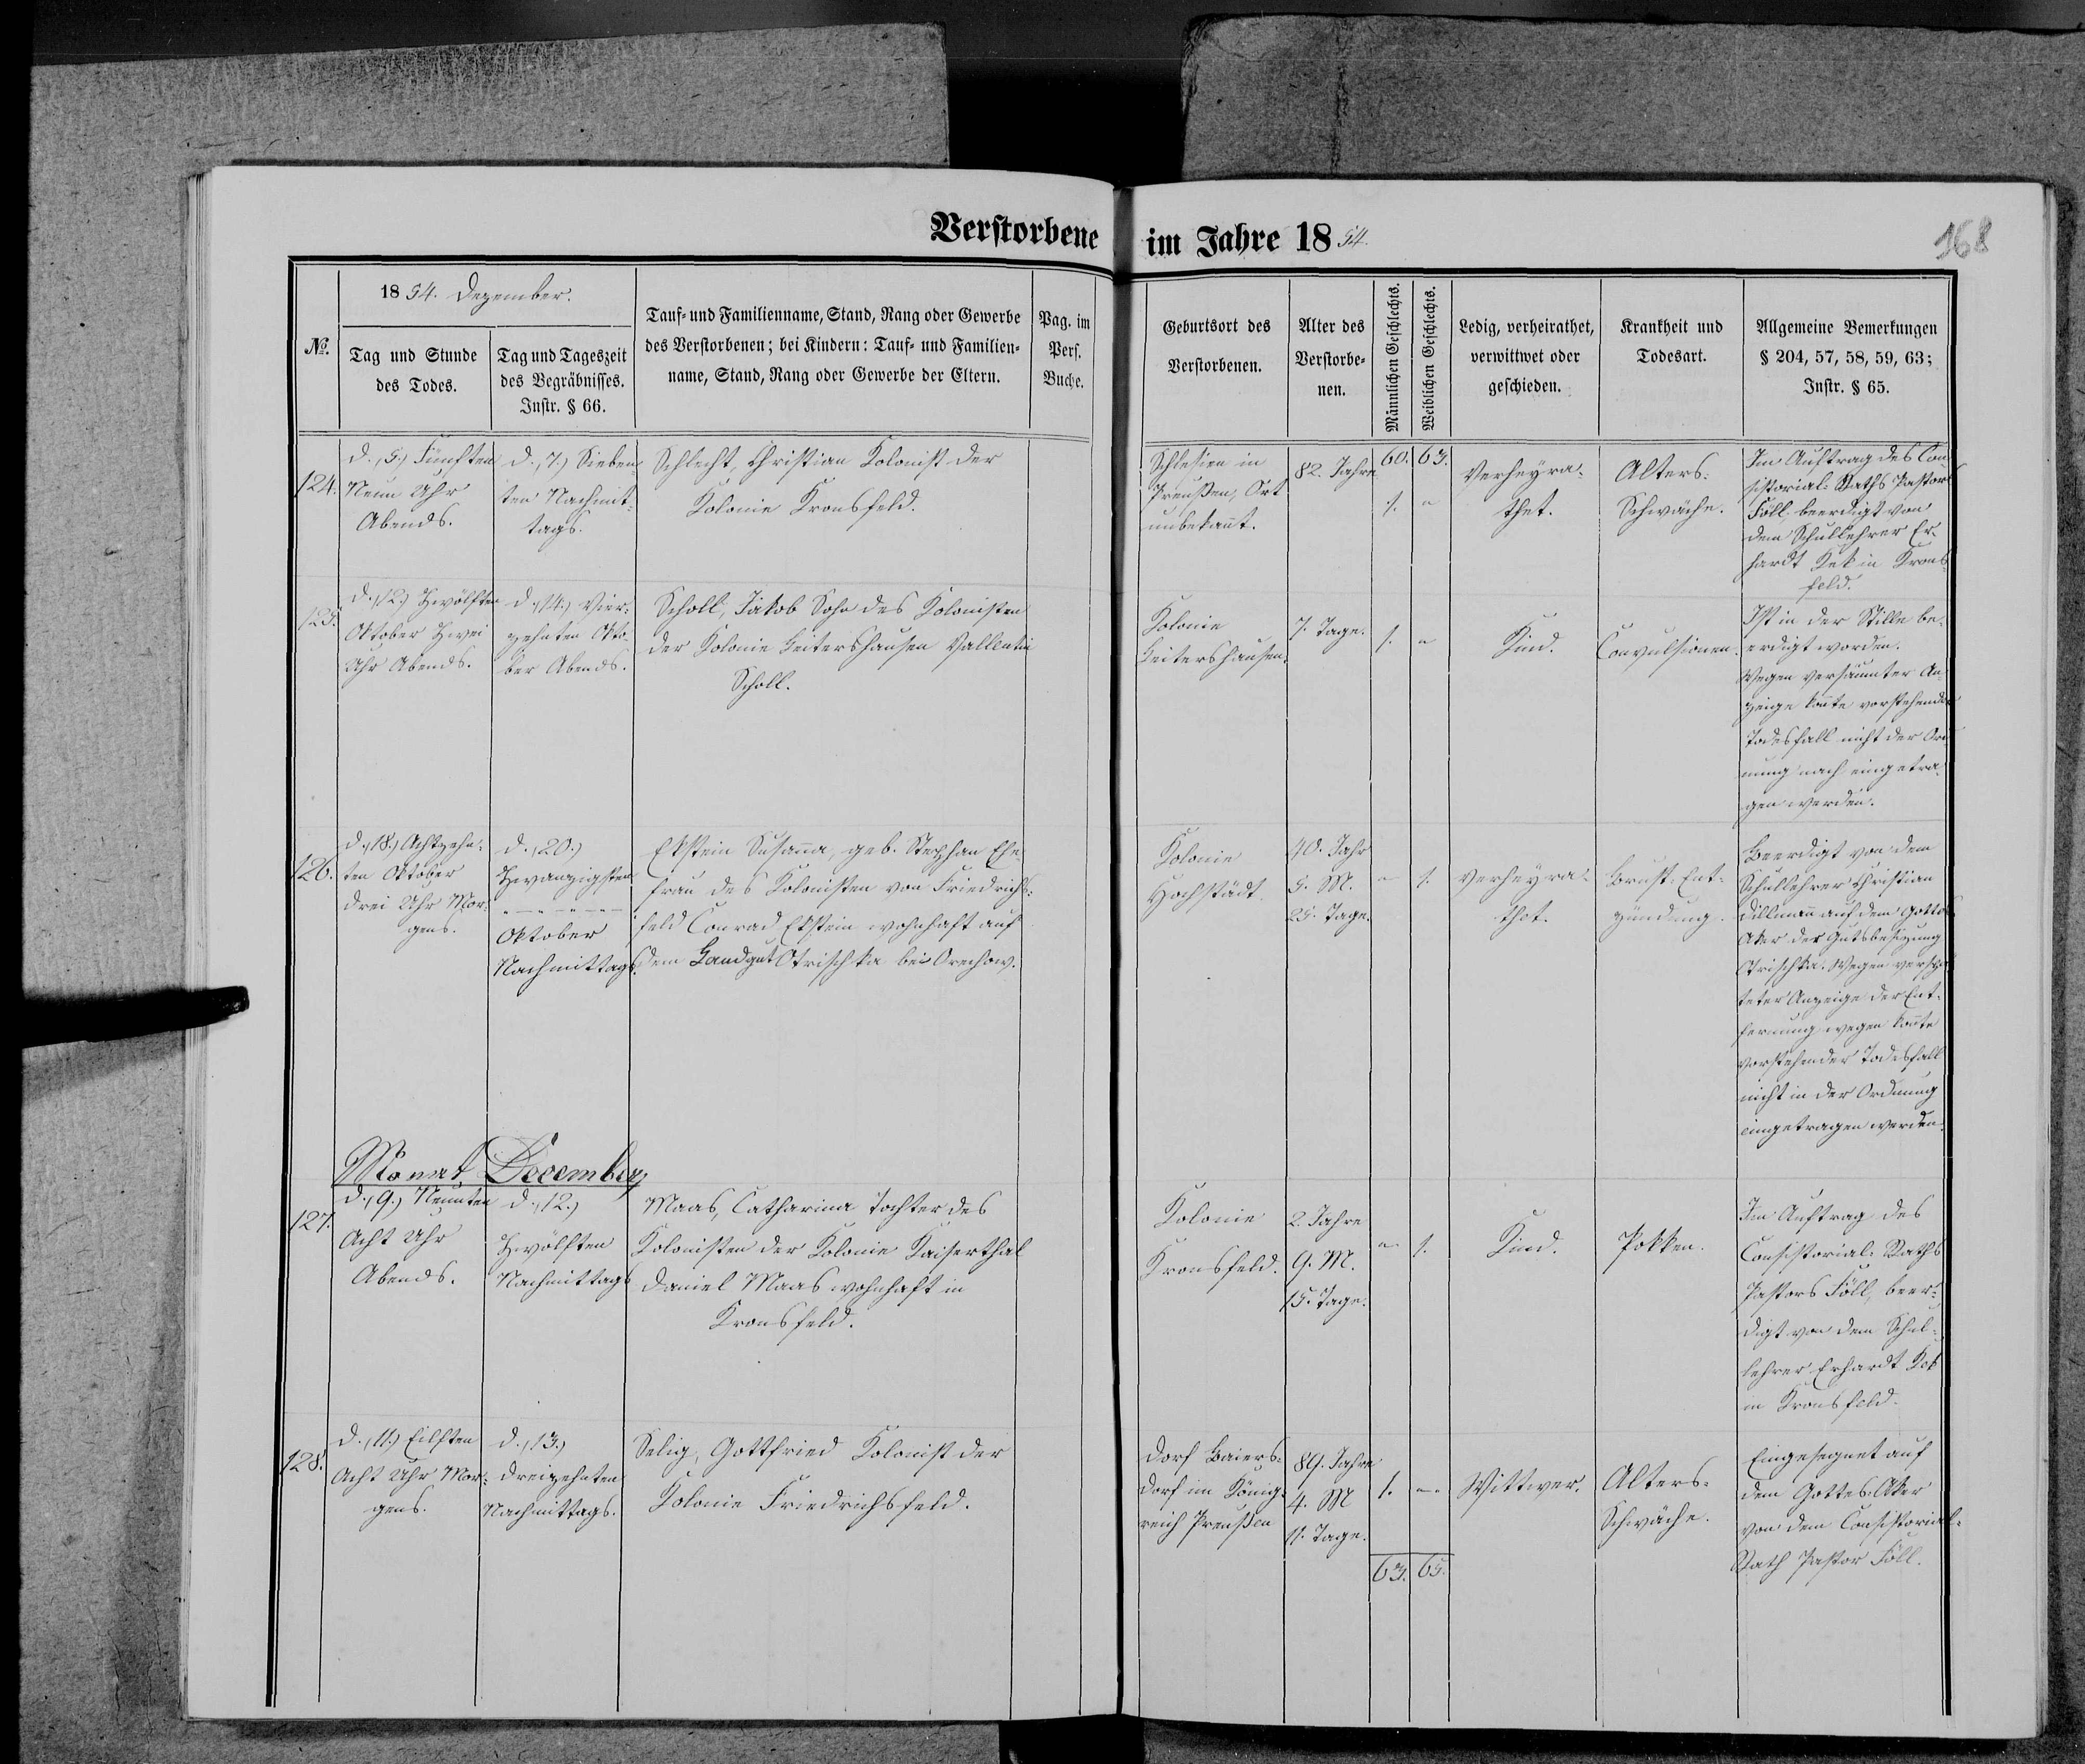 Verstorbene im Jahre 1854.
168
№.
1854. Dezember.
Tag und Stunde
des Todes.
Tag und Tageszeit
des Begräbnisses.
Instr. § 66.
Tauf- und Familienname, Stand, Rang oder Gewerbe
des Verstorbenen; bei Kindern: Tauf- und Familien-
name, Stand, Rang oder Gewerbe der Eltern.
Pag. im
Pers.
Buche.
Geburtsort des
Verstorbenen.
Alter des
Verstorbe-
nen.
Männlichen Geschlechts.
Weiblichen Geschlechts.
Ledig, verheirathet,
verwittwet oder
geschieden.
Krankheit und
Todesart.
Allgemeine Bemerkungen
§ 204, 57, 58, 59, 63;
Instr. § 65.
124.
d. (5.) Fünften
Neun Uhr
Abends.
d. (7.) Sieben
ten Nachmit-
tags.
Schlecht, Christian Kolonist der
Kolonie Kronsfeld.
Schlesien in
Preußen, Ort
unbekannt.
82. Jahre
60. 63.
1. "
Verheyra-
thet.
Alters-
Schwäche.
Im Auftrag des Con
sistorial-Raths Pastors
Föll, beerdigt von
dem Schullehrer Er-
hardt Kek in Krons-
feld.
125.
d. (12.) Zwölften
Oktober Zwei
Uhr Abends.
d. (14.) Vier-
zehnten Okto-
ber Abends.
Scholl, Jakob Sohn des Kolonisten
der Kolonie Leitershausen Vallentin
Scholl.
Kolonie
Leitershausen.
7. Tage.
1. "
Kind.
Convulsionen.
Ist in der Stille be-
erdigt worden.
Wegen versäumter An-
zeige konnte vorstehender
Todesfall nicht der Ord-
nung nach eingetra-
gen werden.
126.
d. (18.) Achtzehn-
ten Oktober
Drei Uhr Mor-
gens.
d. (20.)
Zwanzigsten
Oktober
Nachmittags.
Ekstein Susanna, geb. Stephan Ehe-
frau des Kolonisten von Friedrichs-
feld Conrad Ekstein wohnhaft auf
dem Landgut Otrischka bei Orechow.
Kolonie
Hochstädt.
40. Jahr
5. M.
25. Tage.
" 1.
Verheyra-
thet.
Brust-Ent-
zündung.
Beerdigt von dem
Schullehrer Christian
Dillmann auf dem Gottes
Aker der Gutsbesizung
Otrischka. Wegen verspä
teter Anzeige der Ent-
fernung wegen konnte
vorstehender Todesfall
nicht in der Ordnung
eingetragen werden.
Monat December
127.
d. (9.) Neunten
Acht Uhr
Abends.
d. (12.)
Zwölften
Nachmittags
Maas, Catharina Tochter des
Kolonisten der Kolonie Kaiserthal
Daniel Maas wohnhaft in
Kronsfeld.
Kolonie
Kronsfeld.
2. Jahre
9. M.
15. Tage.
" 1.
Kind.
Pokken.
Im Auftrag des
Consistorial-Raths
Pastors Föll, beer-
digt von dem Schul-
lehrer Erhardt Kek
in Kronsfeld.
128.
d. (11.) Eilften
Acht Uhr Mor-
gens.
d. (13.)
Dreizehnten
Nachmittags.
Selig, Gottfried Kolonist der
Kolonie Friedrichsfeld.
Dorf Baiers-
dorf im König-
reich Preußen
89. Jahre
4. M
11. Tage.
1. "
Wittwer.
Alters-
Schwäche.
Eingesegnet auf
dem Gottes-Aker
von dem Consistorial-
Rath Pastor Föll.
63. 65.